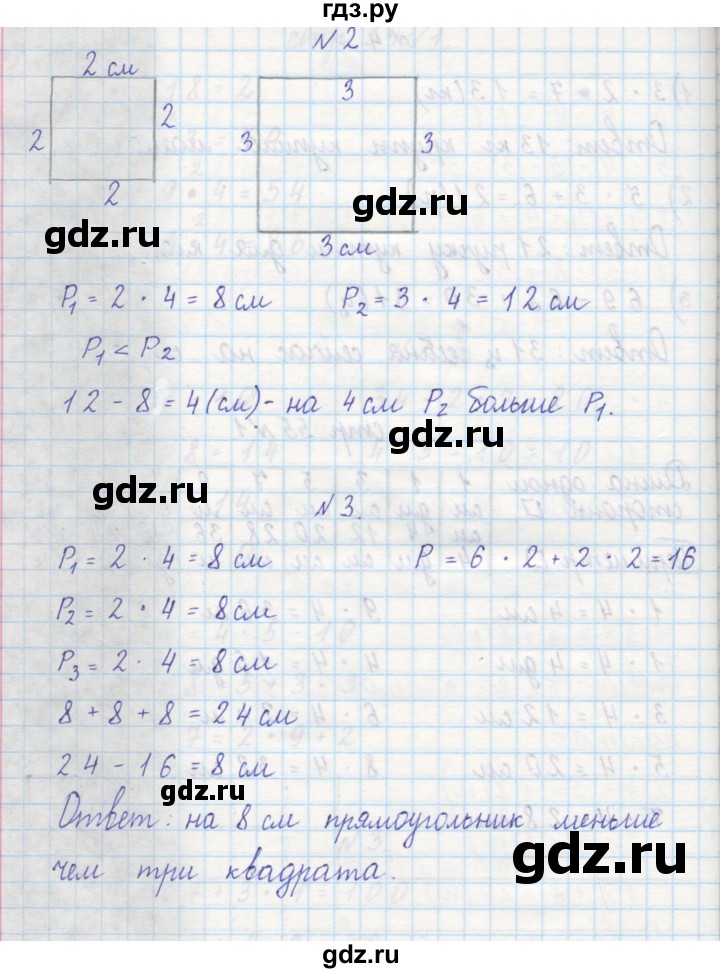 гдз.ру
N 2
2 см
2
2
2
3
3
3
3 см
gdz.ru
gdz.ru
P₁ = 2 · 4 = 8 см P₂ = 3 · 4 = 12 см
P₁ < P₂
12 - 8 = 4 (см) - на 4 см P₂ больше P₁.
gdz.ru
gdz.ru
N 3.
P₁ = 2 · 4 = 8 см P = 6 · 2 + 2 · 2 = 16
P₂ = 2 · 4 = 8 см
P₃ = 2 · 4 = 8 см
8 + 8 + 8 = 24 см
24 - 16 = 8 см
gdz.ru
Ответ: на 8 см прямоугольник меньше
чем три квадрата.
gdz.ru
gdz.ru